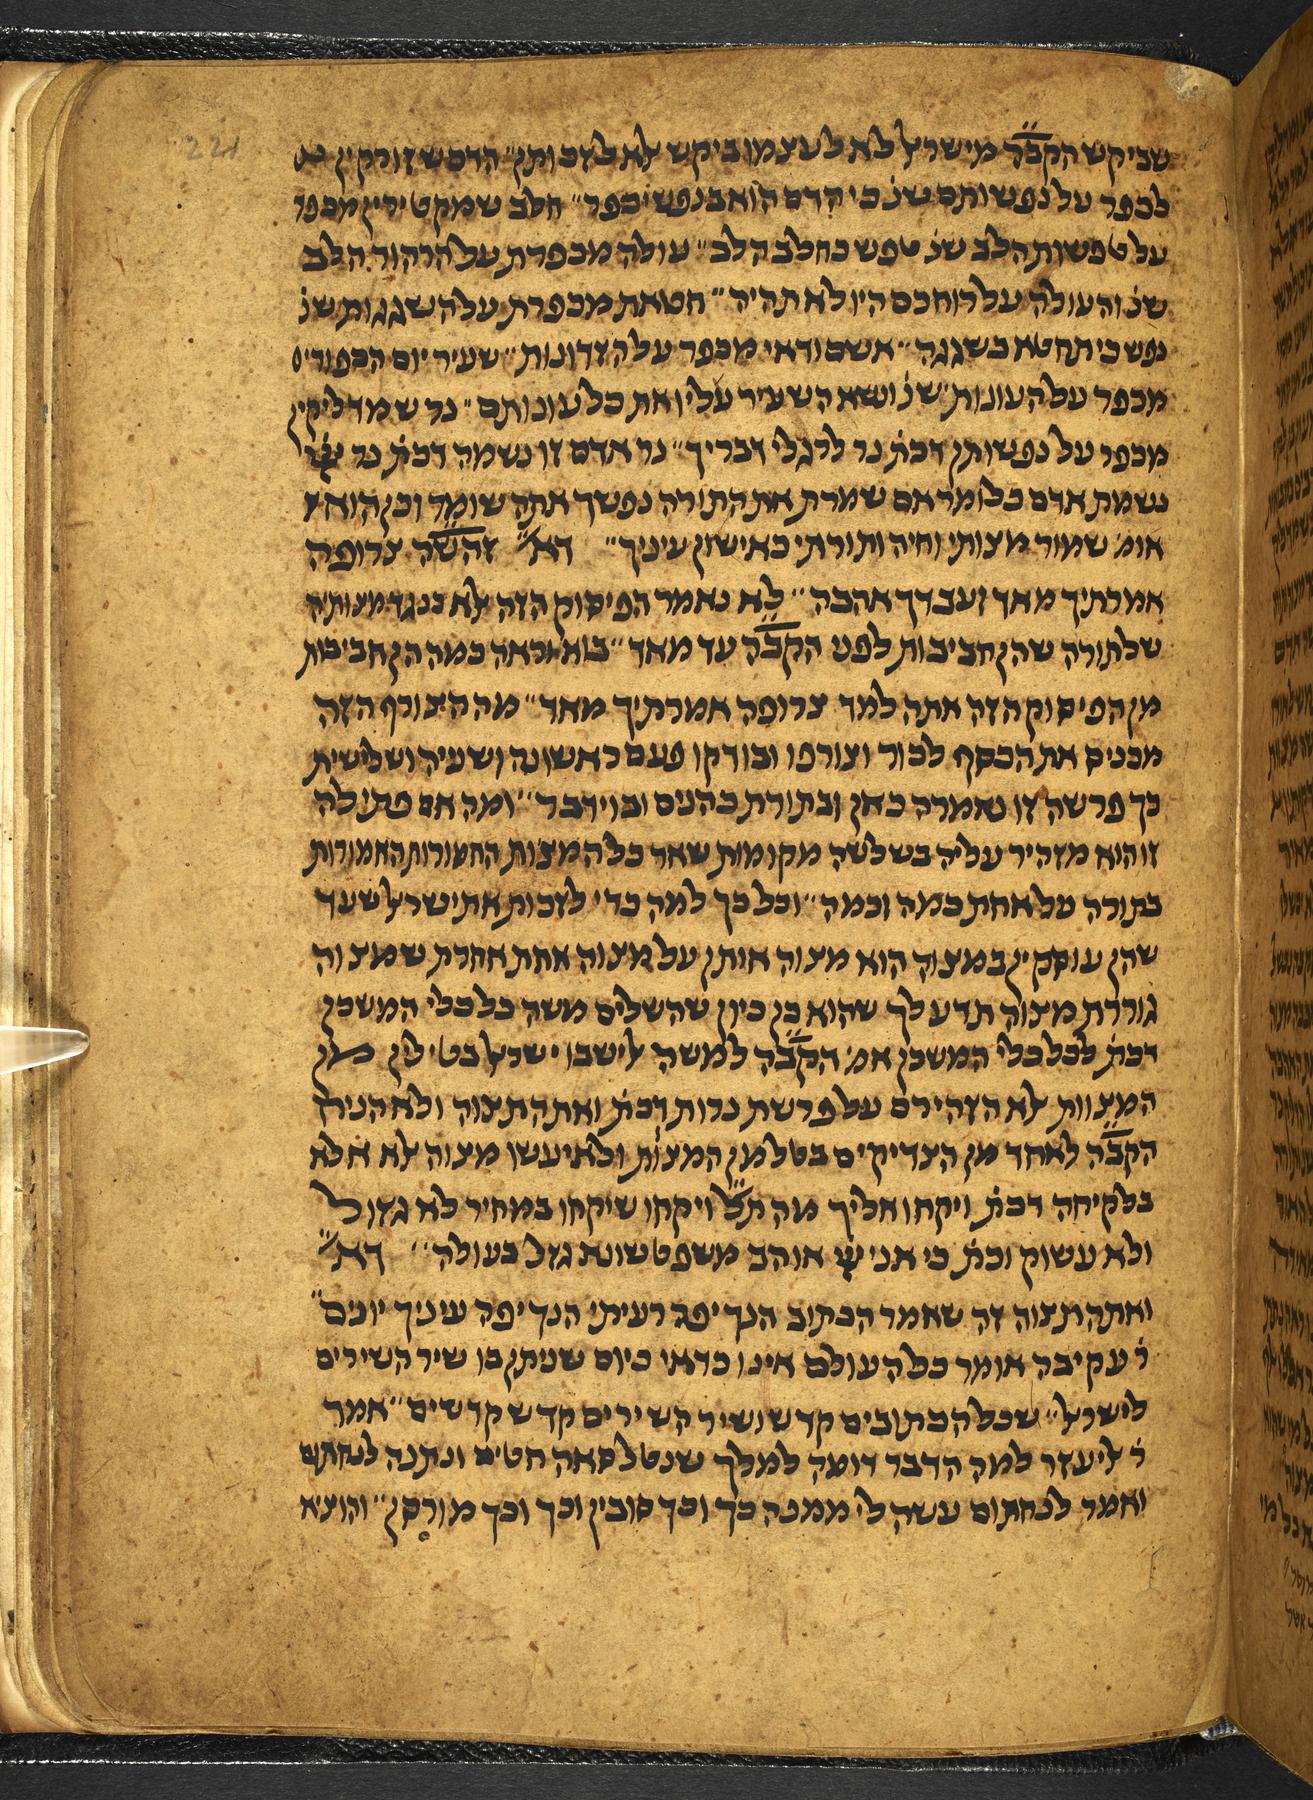 221
שביקש הקב״ה מישראל לא לעצמו ביקש אלא לזכותן״ הדם שזורקין
לכפר על נפשותם שנ׳ כי הדם הוא בנפש יכפר״ חלב שמקטירין מכפר
על טפשות הלב שנ׳ טפש כחלב הלב״ עולה מכפרת על הרהור הלב
שנ׳ והעולה על רוחכם היו לא תהיה״ חטאת מכפרת על השגגות שנ׳
נפש כי תחטא בשגגה״ אשם ודאי מכפר על הזדונות״ שעיר יום הכפורים
מכפר על העונות שנ׳ ונשא השעיר עליו את כל עונותם״ נר שמדליקין
מכפר על נפשותן דכת׳ נר לרגלי דבריך״ נר אדם זו נשמה דכת׳ נר יי׳
נשמת אדם כלומר אם שמרת את התורה נפשך אתה שומר וכן הוא
אומ׳ שמור מצותי וחיה ותורתי כאישון עיניך״ ד״א זהש״ה צרופה
אמרתיך מאד ועבדך אהבה״ לא נאמר הפיסוק הזה אלא כנגד מצותיה
שלתורה שהן חביבות לפני הקב״ה עד מאד״ בוא וראה כמה הן חביבות
מן הפיסוק הזה אתה למד צרופה אמרתיך מאד״ מה הצורף הזה
מכניס את הכסף לכור וצורפו ובודקו פעם ראשונה ושניה ושלישית
כך פרשה זו נאמרה כאן ובתורת כהנים ובוידבר״ ומה אם פתילה
זו הוא מזהיר עליה בשלשה מקומות שאר כל המצות החמורות החמורות
בתורה על אחת כמה וכמה״ וכל כך למה כדי לזכות את ישראל שעד
שהן עוסקין במצוה הוא מצוה אותן על מצוה אחת אחרת שמצוה
גוררת מצוה תדע לך שהוא כן כיון שהשלים משה כל כלי המשכן
דכת׳ לכל כלי המשכן אמ׳ הקב״ה למשה לישבו ישראל בטילין מן
המצוות אלא הזהירם על פרשת נרות דכת׳ ואתה תצוה ולא הניח
הקב״ה לאחד מן הצדיקים בטל מן המצות ולא יעשו מצוה אלא
בלקיחה דכת׳ ויקחו אליך מה ת״ל ויקחו שיקחו במחיר לא גזול
ולא עשוק וכת׳ כי אני יי׳ אוהב משפט שונא גזל בעולה״ ד״א
ואתה תצוה זה שאמר הכתוב הנך יפה רעיתי הנך יפה עיניך יונים״
ר׳ עקיבה אומר כל העולם אינו כדאי כיום שניתן בו שיר השירים
לישראל״ שכל הכתובים קדש ושיר השירים קדש קדשים״ אמר
ר׳ ליעזר למה הדבר דומה למלך שנטל סאה חטים ונתנה לנחתום
ואמר לנחתום עשה לי ממנה כך וכך סובין וכך וכך מורסן״ והוציא